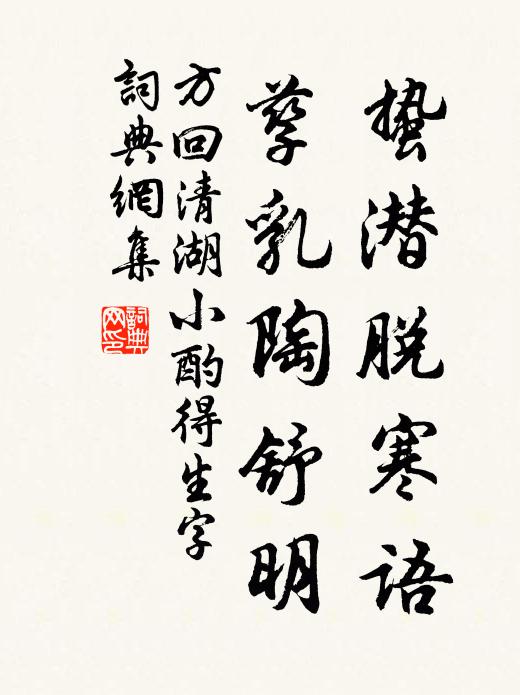 蛰潜脱寒语
孳乳陶舒明
方回清湖小酌得生字
詞典網集
詞典网印